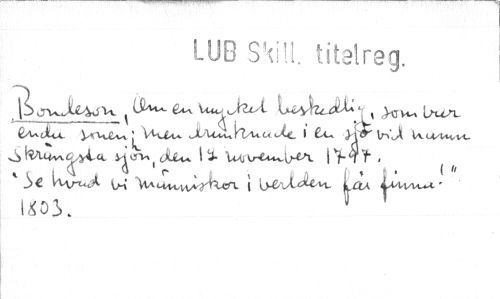 LUB Skill. titelreg.
Bondeson, Om en mycket beskedlig, som var
enda sonen; men drunknade i en sjö vid namn
Skrängsta sjön, den 12 november 1797.
"Se hvad vi människor i verlden får finna!"
1803.